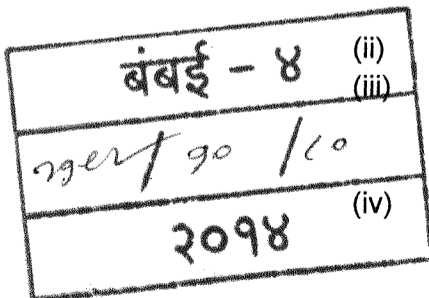 बंबई - ४ (ii)
(iii)
/ १० / ८०
२०१४ (iv)